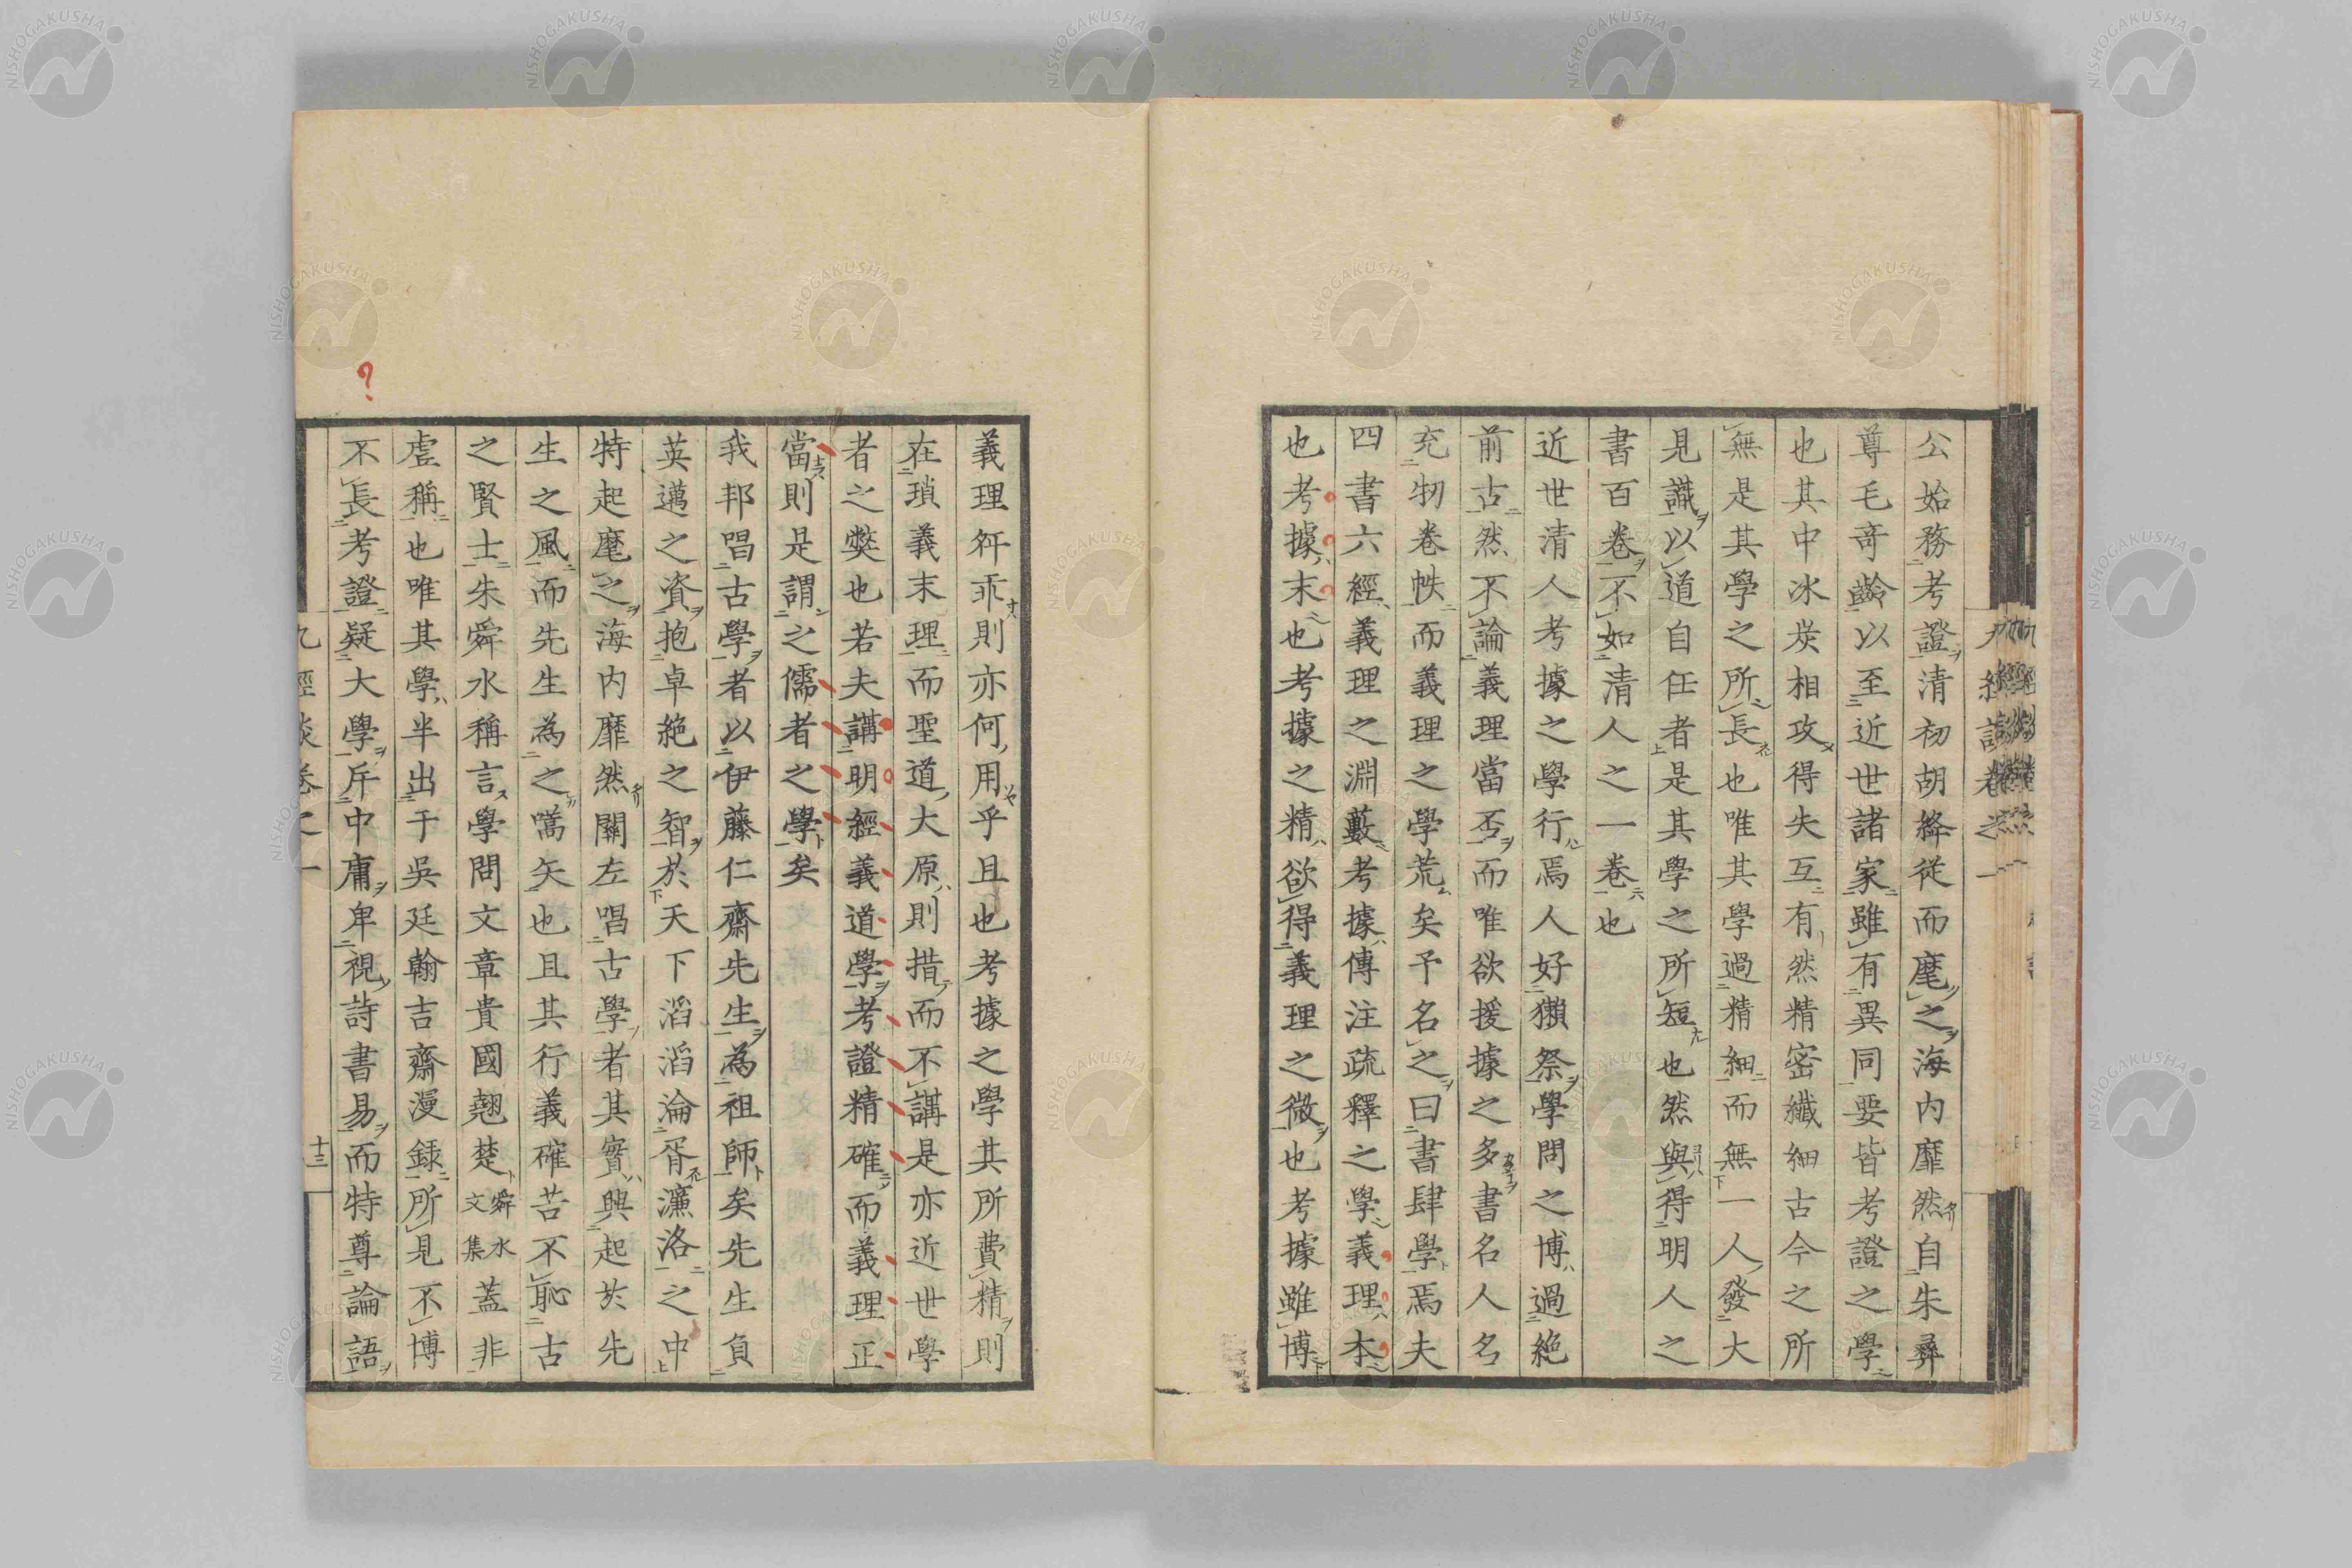 公始務考證清初胡絳從而麾之海内靡然自朱彝
尊毛竒齡以至近世諸家雖有異同要皆考證之學
也其中冰炭相攻得失互有然精密纖細古今之所
無是其學之所長也唯其學過精細而無一人發大
見識以道自任者是其學之所短也然與得明人之
書百卷不如清人之一卷也
近世清人考據之學行焉人好獺祭學問之博過絶
前古然不論義理當否而唯欲援據之多書名人名
充牣卷帙而義理之學荒矣予名之曰書肆學焉夫
四書六經義理之淵藪考據傳注疏釋之學義理本
也考據末也考據之精欲得義理之微也考據雖博
義理舛乖則亦何用乎且也考據之學其所費精則
在瑣義末理而聖道大原則措而不講是亦近世學
者之獘也若夫講明經義道學考證精確而義理正
當則是謂之儒者之學矣
我邦唱古學者以伊藤仁齋先生為祖師矣先生負
英邁之資抱卓絶之智於天下滔滔淪胥濂洛之中
特起麾之海内靡然關左唱古學者其實興起於先
生之風而先生為之嚆矢也且其行義確苦不恥古
之賢士朱舜水稱言學問文章貴國翹楚舜水文集蓋非
虛稱也唯其學半出于吳廷翰吉齋漫録所見不博
不長考證疑大學斥中庸卑視詩書易而特尊論語
九經談卷之一
十三
NISHOGAKUSHA